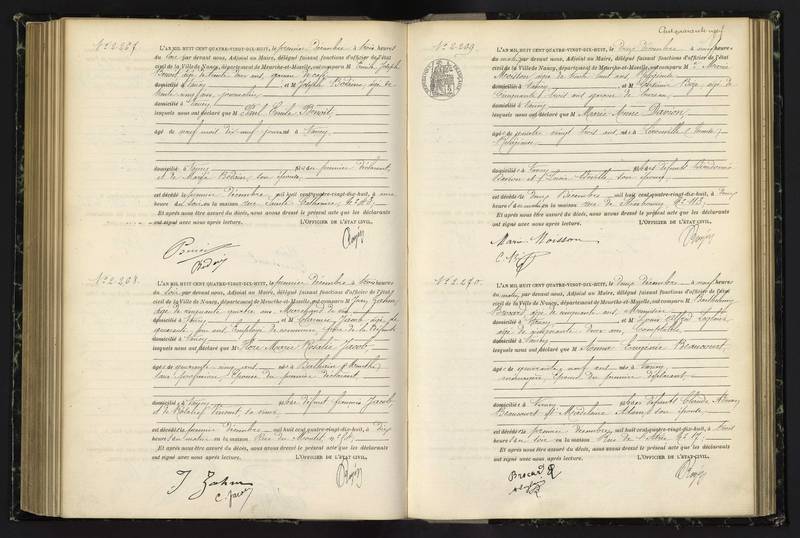 N° 2.267
L'AN MIL HUIT CENT QUATRE-VINGT-DIX-HUIT, le premier Décembre à trois heures
du soir par devant nous, Adjoint au Maire, délégué faisant fonctions d'officier de l'état
civil de la Ville de Nancy, département de Meurthe-et-Moselle, ont comparu M Emile Joseph
Benoit âgé de trente deux ans, garçon de café
domicilié à Nancy et M Joseph Bodain, âgé de
trente ans, journalier
domicilié à Nancy
lesquels nous ont déclaré que M Paul Emile Benoit,
âgé de neuf mois dix neuf jours né à Nancy,
domicilié à Nancy fils du premier déclarant,
et de Marie Bodain, son épouse,
est décédé le premier Décembre mil huit cent quatre-vingt-dix-huit, à une
heure du soir en la maison rue Sainte Catherine, N°
Et après nous être assuré du décès, nous avons dressé le présent acte que les déclarants
ont signé avec nous après lecture. L'OFFICIER DE L'ÉTAT CIVIL,
Benoit
Bodain
N° 2.268
L'AN MIL HUIT CENT QUATRE-VINGT-DIX-HUIT, le premier Décembre à trois heures
du soir, par devant nous, Adjoint au Maire, délégué faisant fonctions d'officier de l'état
civil de la Ville de Nancy, département de Meurthe-et-Moselle, ont comparu M
âgé de cinquante quatre ans, Marchand de
domicilié à Nancy et M Clarence Jacob, âgé de
quarante ans Employé de commerce, frère de la défunte
domicilié à Nancy
lesquels nous ont déclaré que M Flore Marie Rosalie Jacob,
âgée de quarante cinq ans née à (Meurthe)
sans profession, épouse du premier déclarant,
domiciliée à Nancy fille de défunt Jacob
et de Vincent, sa veuve
est décédée le premier Décembre mil huit cent quatre-vingt-dix-huit, à dix
heures du matin en la maison Rue du Montet, n°
Et après nous être assuré du décès, nous avons dressé le présent acte que les déclarants
ont signé avec nous après lecture. L'OFFICIER DE L'ÉTAT CIVIL,
J Zahm
C. Jacob
Cent quarante neuf
N° 2.269
L'AN MIL HUIT CENT QUATRE-VINGT-DIX-HUIT, le deux Décembre à neuf heures
du matin par devant nous, Adjoint au Maire, délégué faisant fonctions d'officier de l'état
civil de la Ville de Nancy, département de Meurthe-et-Moselle, ont comparu M Marie
Moisson âgé de trente huit ans, Religieuse
domicilié à Nancy et M âgé de
cinquante trois ans garçon de bureau
domicilié à Nancy
lesquels nous ont déclaré que M Marie Anne Davion,
âgée de quatre vingt trois ans née à
Religieuse
domiciliée à Nancy fille de défunts
Davion et son épouse,
est décédée le deux Décembre mil huit cent quatre-vingt-dix-huit, à deux
heures du matin en la maison rue de Strasbourg N° 113,
Et après nous être assuré du décès, nous avons dressé le présent acte que les déclarants
ont signé avec nous après lecture. L'OFFICIER DE L'ÉTAT CIVIL,
Marie Moisson
N° 2.270.
L'AN MIL HUIT CENT QUATRE-VINGT-DIX-HUIT, le deux Décembre à neuf heures
du matin, par devant nous, Adjoint au Maire, délégué faisant fonctions d'officier de l'état
civil de la Ville de Nancy, département de Meurthe-et-Moselle, ont comparu M Barthélemy
Brocard âgé de cinquante ans, Menuisier
domicilié à Nancy et M Louis Alfred
âgé de cinquante deux ans, Comptable
domicilié à Nancy
lesquels nous ont déclaré que M Anne Eugénie Beaucourt,
âgée de quarante neuf ans née à Nancy
ménagère, épouse du premier déclarant,
domiciliée à Nancy fille de défunts Claude
Beaucourt et Madeleine Adam, son épouse,
est décédée le premier Décembre, mil huit cent quatre-vingt-dix-huit, à trois
heures du soir en la maison Rue de N° 17,
Et après nous être assuré du décès, nous avons dressé le présent acte que les déclarants
ont signé avec nous après lecture. L'OFFICIER DE L'ÉTAT CIVIL,
Brocard